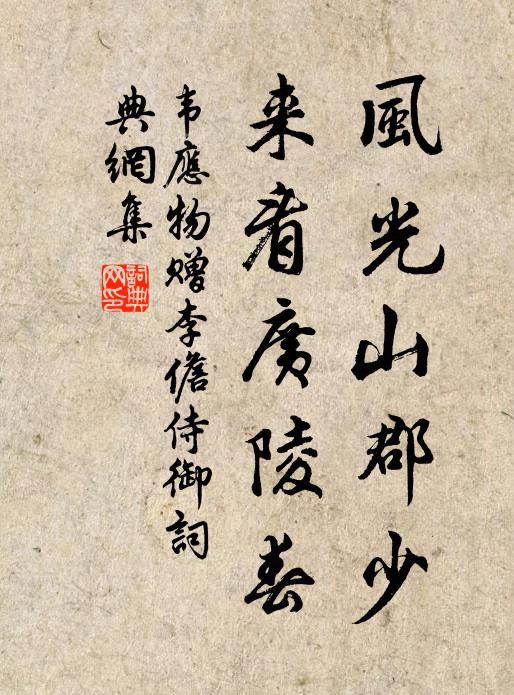 風光山郡少
来看廣陵春
韦應物贈李儋侍御詞
典網集
詞典
网印